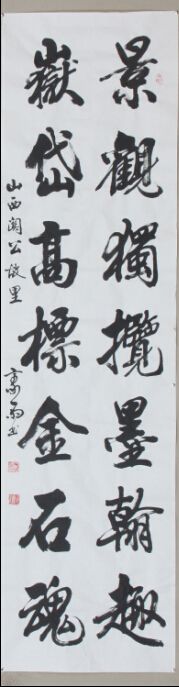 景觀獨攬墨翰趣
嶽岱高標金石魂
山西關公故里